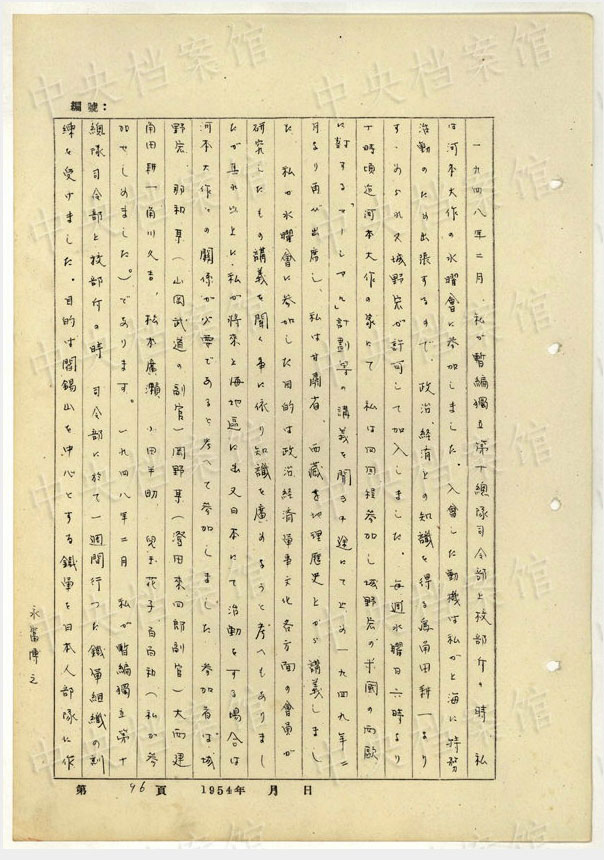 編號：
一九四八年二月、私が暫編獨立第十總隊司令部上校部附の時、私
は河本大作の水曜會に参加しました。入會した動機は私が上海に特務
活動のため出張するので、政治、経済上の知識を得る為角田耕一より
すゝめられ又城野宏が許可して加入しました。毎週水曜日六時より
十時頃迄河本大作の家にて 私は四回程参加し城野宏の米國の西歐
に対する「マーシアル」計劃等の講義を聞き中途にて止め一九四九年二
月より再び出席し、私は甘肅省、西藏を地理歴史上から講義しまし
た、私が水曜會に参加した目的は政治経済軍事文化各方面の會員が
研究したもの講義を聞く事に依り知識を廣めようと考へもありまし
たが其れ以上に私が将来上海地區に出又日本にて活動をする場合は
河本大作との関係が必要であると考へて参加しました 参加者は城
野宏、羽和某（山岡武道の副官）岡野某（澄田來四郎副官）大西運
角田耕一角川久吉、松本廣瀬 小田半助、兒玉花子、百百和（私が参
加せしめました）。であります。一九四八年二月 私が暫編獨立第十
總隊司令部上校部付の時、司令部に於て一週間行った鐵軍組織の訓
練を受けました。目的は閻錫山を中心とする鐵軍を日本人部隊に作
永富博之
第 96 頁 1954年 月 日
中央档案馆